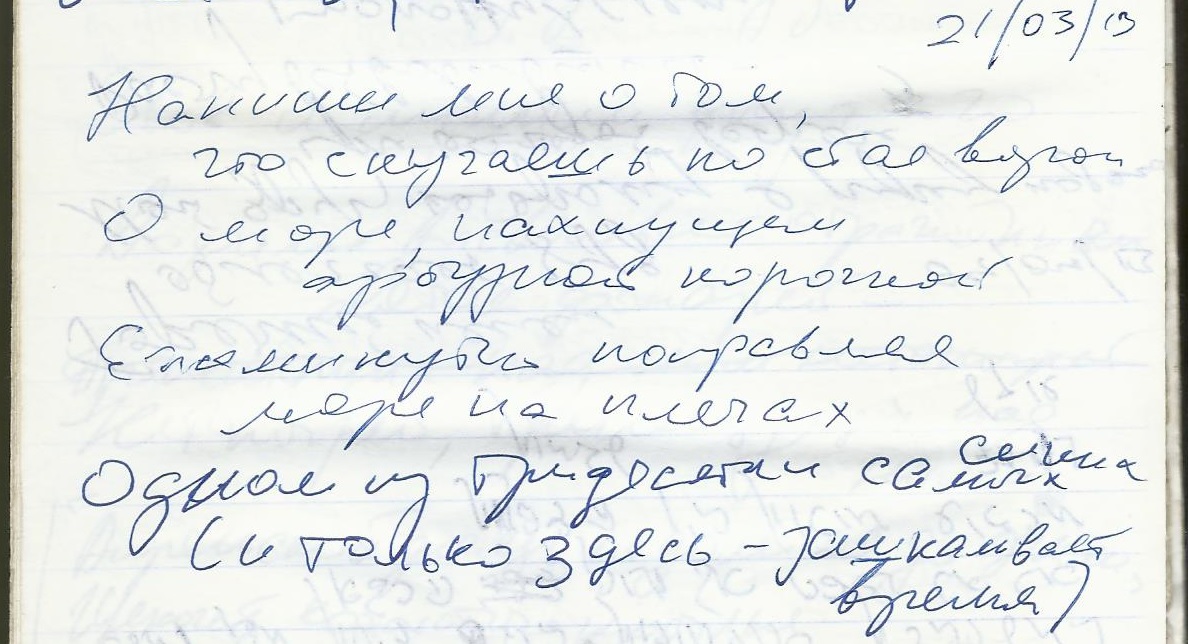 21/03/13
Напиши мне о том,
что скучаешь по стае ворон
О море, пахнущем
арбузной корочкой
Ежеминутно поправляя
море на плечах
Одном из тридесяти самых
(и только здесь – зашкаливает
время)